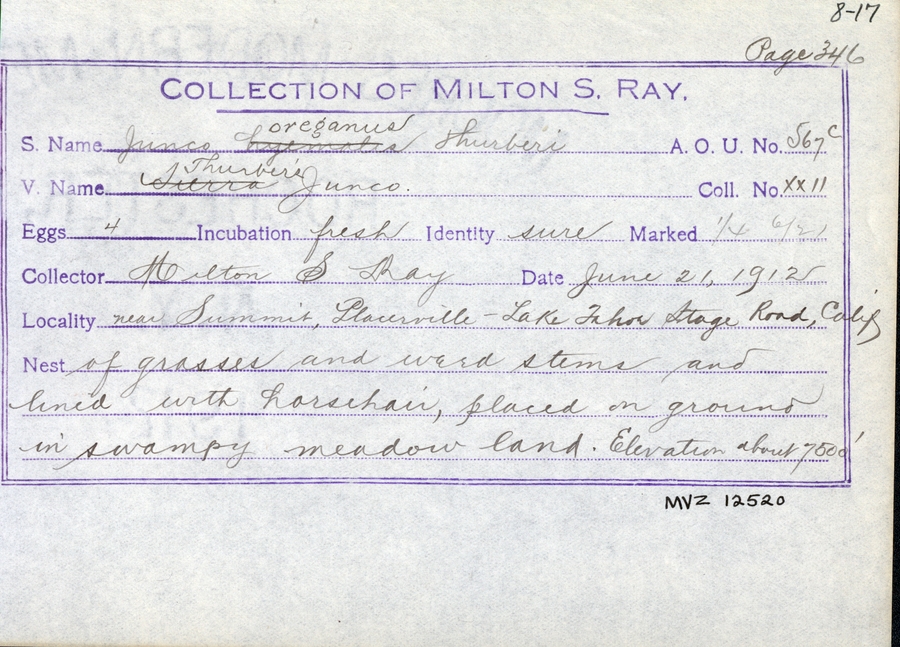 8-17
Page 346
COLLECTION OF MILTON S. RAY.
oreganus
S. Name Junco hyemalis thurberi A. O. U. No. 567c
Thurberi
V. Name Sierra Junco. Coll. No. XX11
Eggs 4 Incubation fresh Identity sure Marked 1/4 6/21
Collector Milton S Ray Date June 21, 1912
Locality near Summit, Placerville - Lake Tahoe Stage Road, Calif
Nest of grasses and weed stems and
lined with horsehair, placed on ground
in swampy meadow land. Elevation about 7500'
MVZ 12520